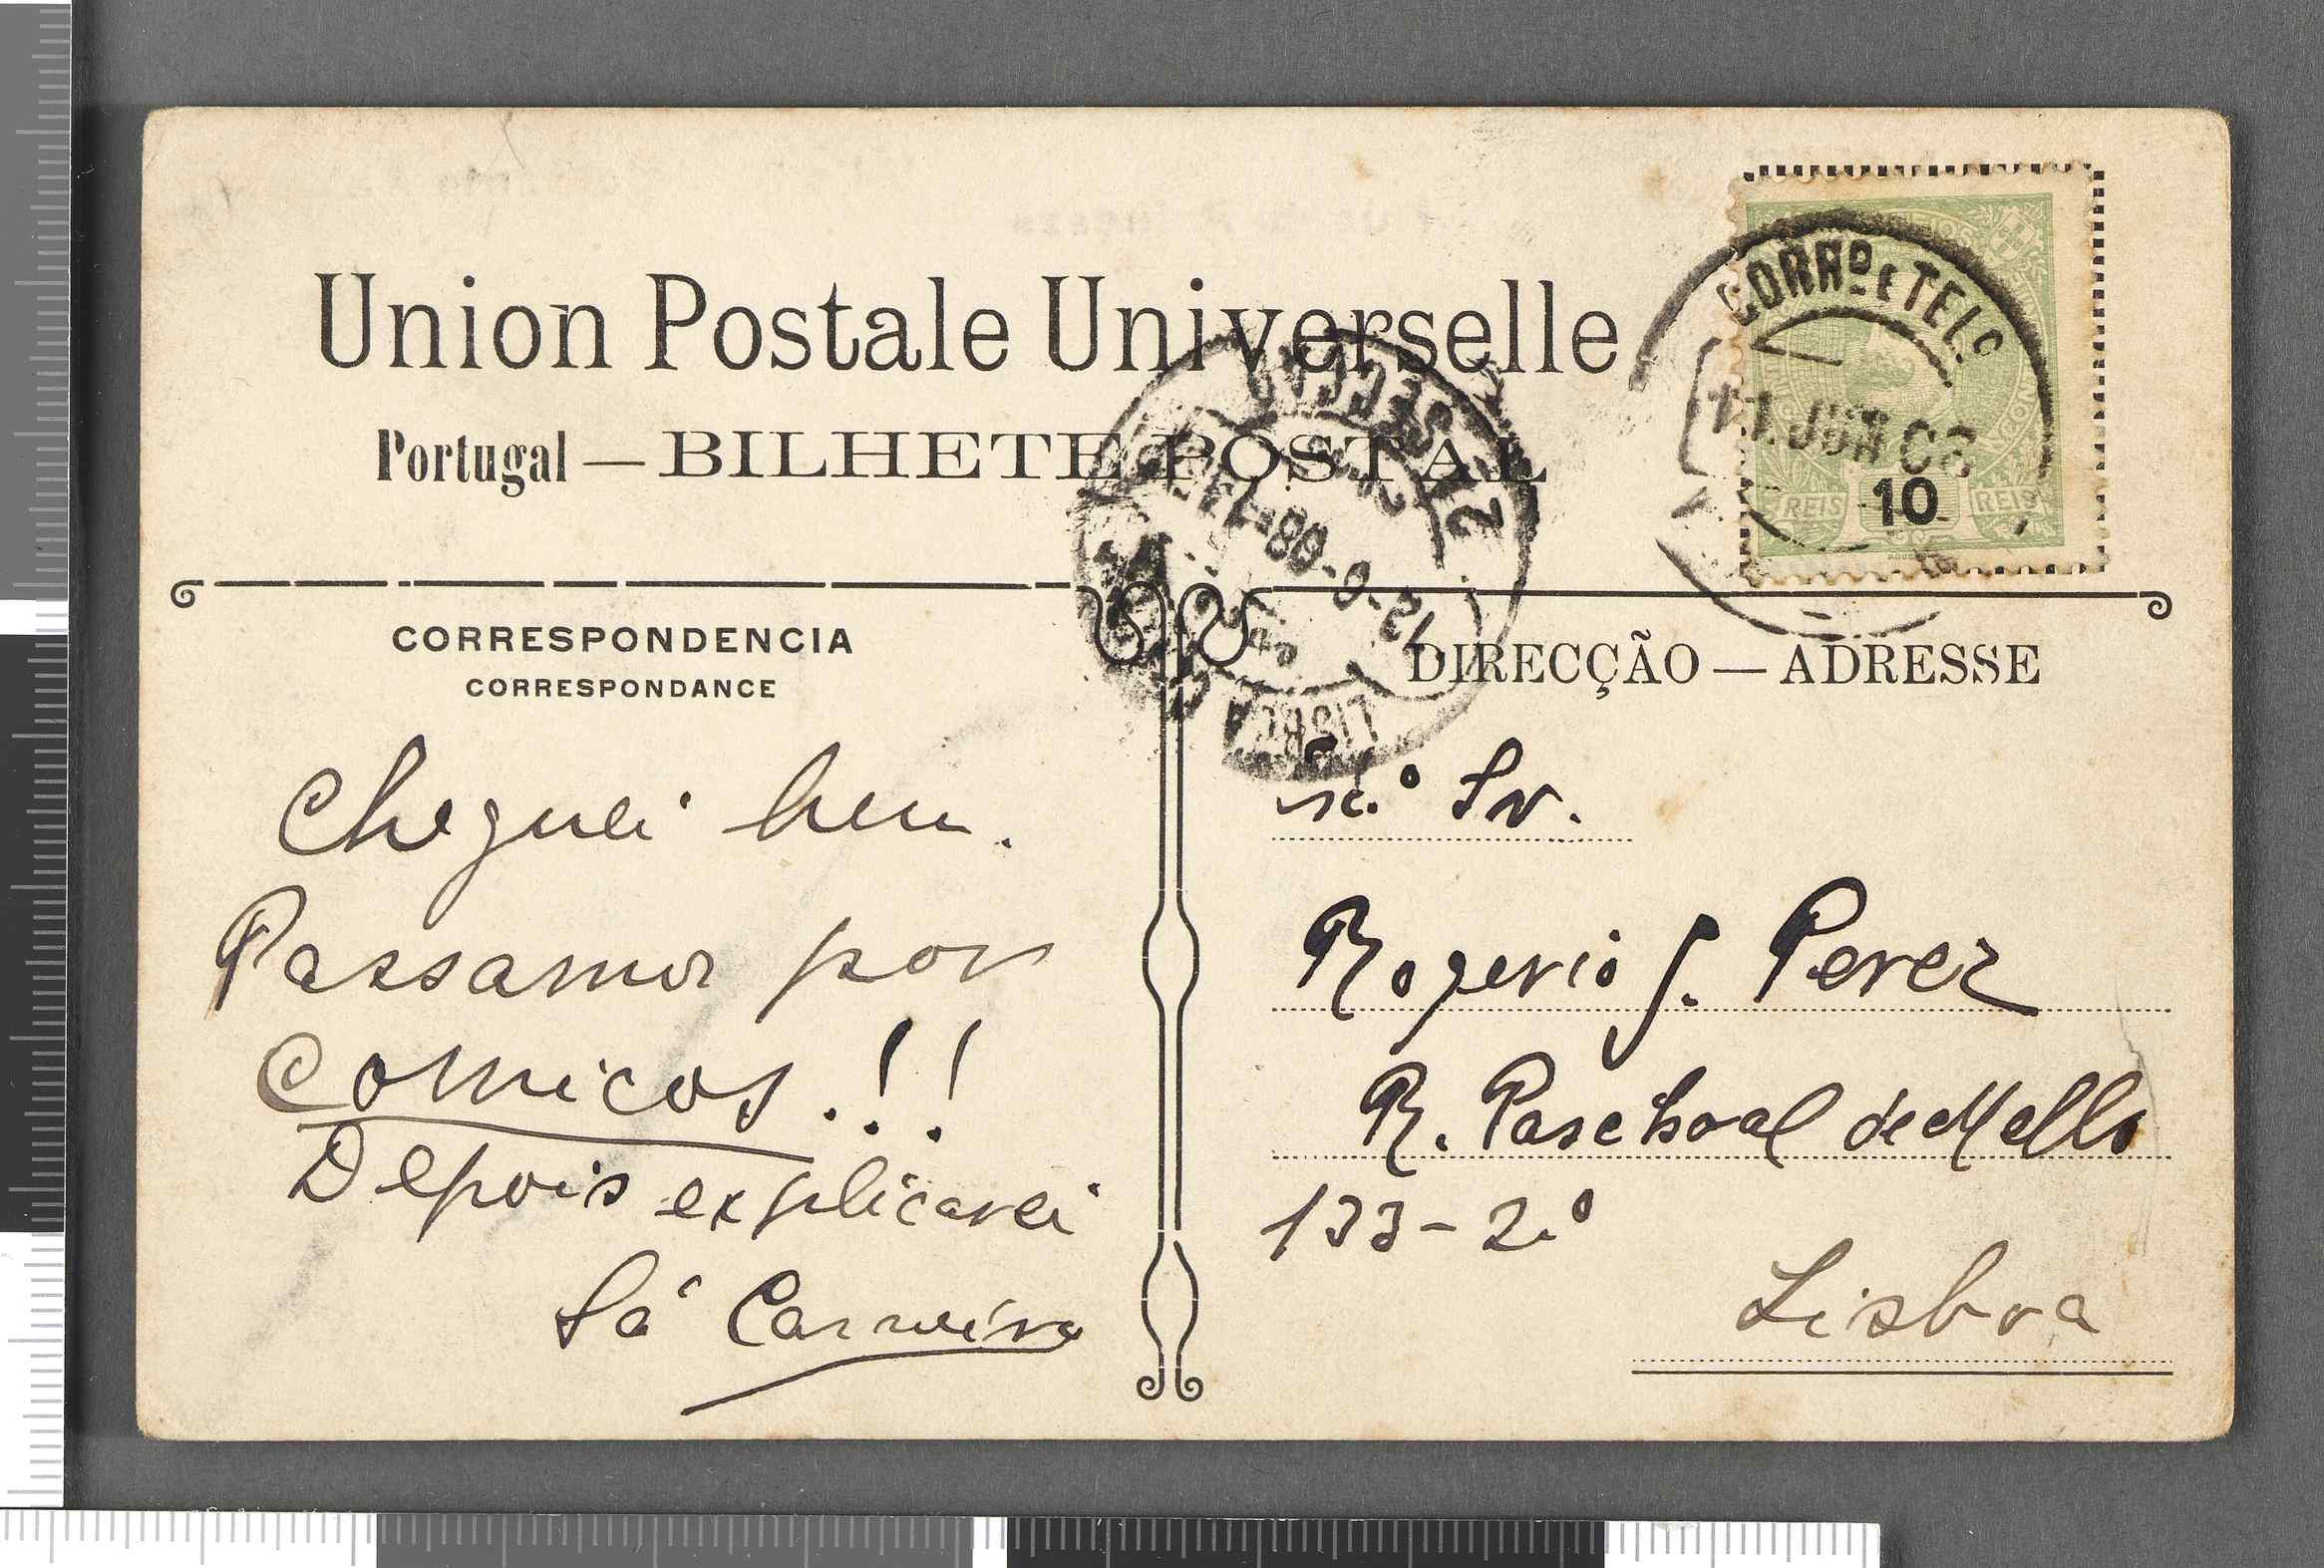 Union Postale Universelle
Portugal — BILHETE POSTAL
CORRº E TELº
11 JUN 08
REIS 10 REIS
2ª SECÇÃO
12-6-08
LISBOA
CORRESPONDENCIA
CORRESPONDANCE
Cheguei bem.
Passamos por
comicos.!!
Depois explicarei
Sá Carneiro
DIRECÇÃO — ADRESSE
Sr.
Rogerio J. Perez
R. Paschoal de Mello
133-2.º
Lisboa